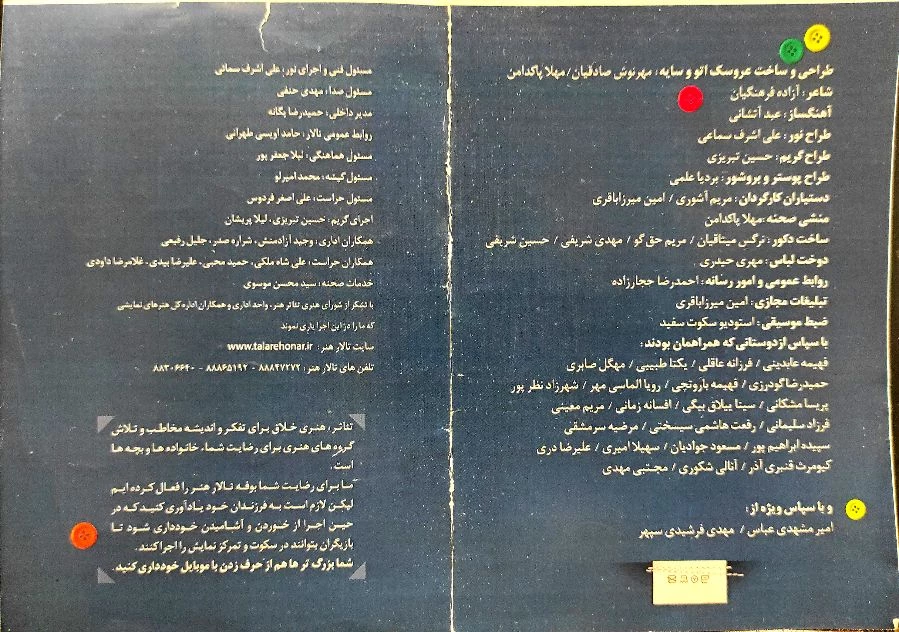 طراحی و ساخت عروسک اتو و سایه: مهرنوش صادقیان/ مهلا پاکدامن
شاعر: آزاده فرهنگیان
آهنگساز: عبد آتشانی
طراح نور: علی اشرف سماعی
طراح گریم: حسین تبریزی
طراح پوستر و بروشور: بردیا علمی
دستیاران کارگردان: مریم آشوری / امین میرزاباقری
منشی صحنه: مهلا پاکدامن
ساخت دکور: نرگس میثاقیان / مریم حق گو / مهدی شریفی / حسین شریفی
دوخت لباس: مهری حیدری
روابط عمومی و امور رسانه: احمدرضا حجارزاده
تبلیغات مجازی: امین میرزاباقری
ضبط موسیقی: استودیو سکوت سفید
با سپاس از دوستانی که همراهمان بودند:
فهیمه عابدینی / فرزانه عاقلی / یکتا طبیبی / مهگل صابری
حمیدرضا گودرزی / فهیمه باروتچی / رویا الماسی مهر / شهرزاد نظر پور
پریسا مشکانی / سینا ییلاق بیگی / افسانه زمانی / مریم معینی
فرزاد سلیمانی / رفعت هاشمی سیسختی / مرضیه سرمشقی
سپیده ابراهیم پور / مسعود جوادیان / سهیلا امیری / علیرضا دری
کیومرث قنبری آذر / آنالی شکوری / مجتبی مهدی
و با سپاس ویژه از:
امیر مشهدی عباس / مهدی فرشیدی سپهر
مسئول فنی و اجرای نور: علی اشرف سمائی
مسئول صدا: مهدی حنفی
مدیر داخلی: حمیدرضا یگانه
روابط عمومی تالار: حامد اویسی طهرانی
مسئول هماهنگی: لیلا جعفر پور
مسئول گیشه: محمد امیرلو
مسئول حراست: علی اصغر فردوس
اجرای گریم: حسین تبریزی، لیلا پریشان
همکاران اداری: وحید آزادمنش، شراره صدر، جلیل رفیعی
همکاران حراست: علی شاه ملکی، حمید محبی، علیرضا بیدی، غلامرضا داودی
خدمات صحنه: سید محسن موسوی
با تشکر از شورای هنری تئاتر هنر، واحد اداری و همکاران اداره کل هنرهای نمایشی
که ما را در این اجرا یاری نمودند
سایت تالار هنر: www.talarehonar.ir
تلفن های تالار هنر: ۸۸۸۴۷۲۷۲ - ۸۸۸۶۵۱۹۲ - ۸۸۳۰۶۶۴۰
تئاتر، هنری خلاق برای تفکر و اندیشه مخاطب و تلاش
گروه های هنری برای رضایت شما، خانواده ها و بچه ها
است.
ما برای رضایت شما بوفه تالار هنر را فعال کرده ایم
لیکن لازم است به فرزندان خود یادآوری کنید که در
حین اجرا از خوردن و آشامیدن خودداری شود تا
بازیگران بتوانند در سکوت و تمرکز نمایش را اجرا کنند.
شما بزرگ تر ها هم از حرف زدن با موبایل خودداری کنید.